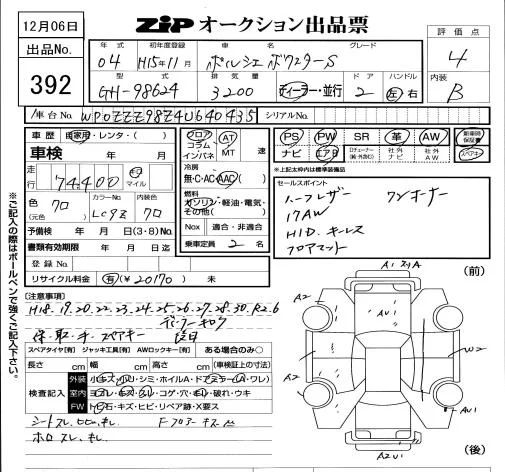 12月06日
ZiP オークション出品票
出品No.
392
年式 初年度登録 車名 グレード
04 H15年11月 ポルシェ ボクスターS
型式 排気量 ドア ハンドル
GH-98624 3200 ディーラー・並行 2 左 右
評価点
4
内装
B
車台No. WP0ZZZ98Z4U640435 シリアルNo.
車歴 自家用・レンタ・( )
車検 年 月
走行 74,400 キロ マイル
色 クロ カラーNo. LC9Z 内装色 クロ
(元色)
予備検 年 月 日(3・8)No.
書類有効期限 年 月 日迄
登録No.
リサイクル料金 有(¥20170) 未
フロア コラム インパネ AT MT 速
冷房
無・C・AC・AAC( )
燃料
ガソリン・軽油・電気・その他( )
Nox 適合・非適合
乗車定員 2 名
PS PW SR 革 AW 新車時保証書
ナビ エアB 社外ナビ 社外AW スペアキー
*上記太枠内は標準装備品
セールスポイント
ハーフレザー ワンオーナー
17AW
HID キーレス
フロアマット
※ご記入の際はボールペンで強くご記入下さい。
[注意事項]
H18.19.20.22.23.24.25.26.27.28.30.R2.6
ディーラーキロク
保・取・キースペアキー 後日
スペアタイヤ[有] ジャッキ工具[有] AWロックキー[有] ある場合のみ○
長さ cm 幅 cm 高さ cm (車検証上の寸法)
検査記入
外装 小キズ・小凹・シミ・ホイルA・ドアミラー(A・ワレ)
室内 ヨゴレ・キズ・スレ・コゲ・穴・キレ・破れ・ウキ
FW トビ石・キズ・ヒビ・リペア跡・X要ス
(前)
A1 スリA
A2
AU1
A2
W2
A3
AU1
A2U1
(後)